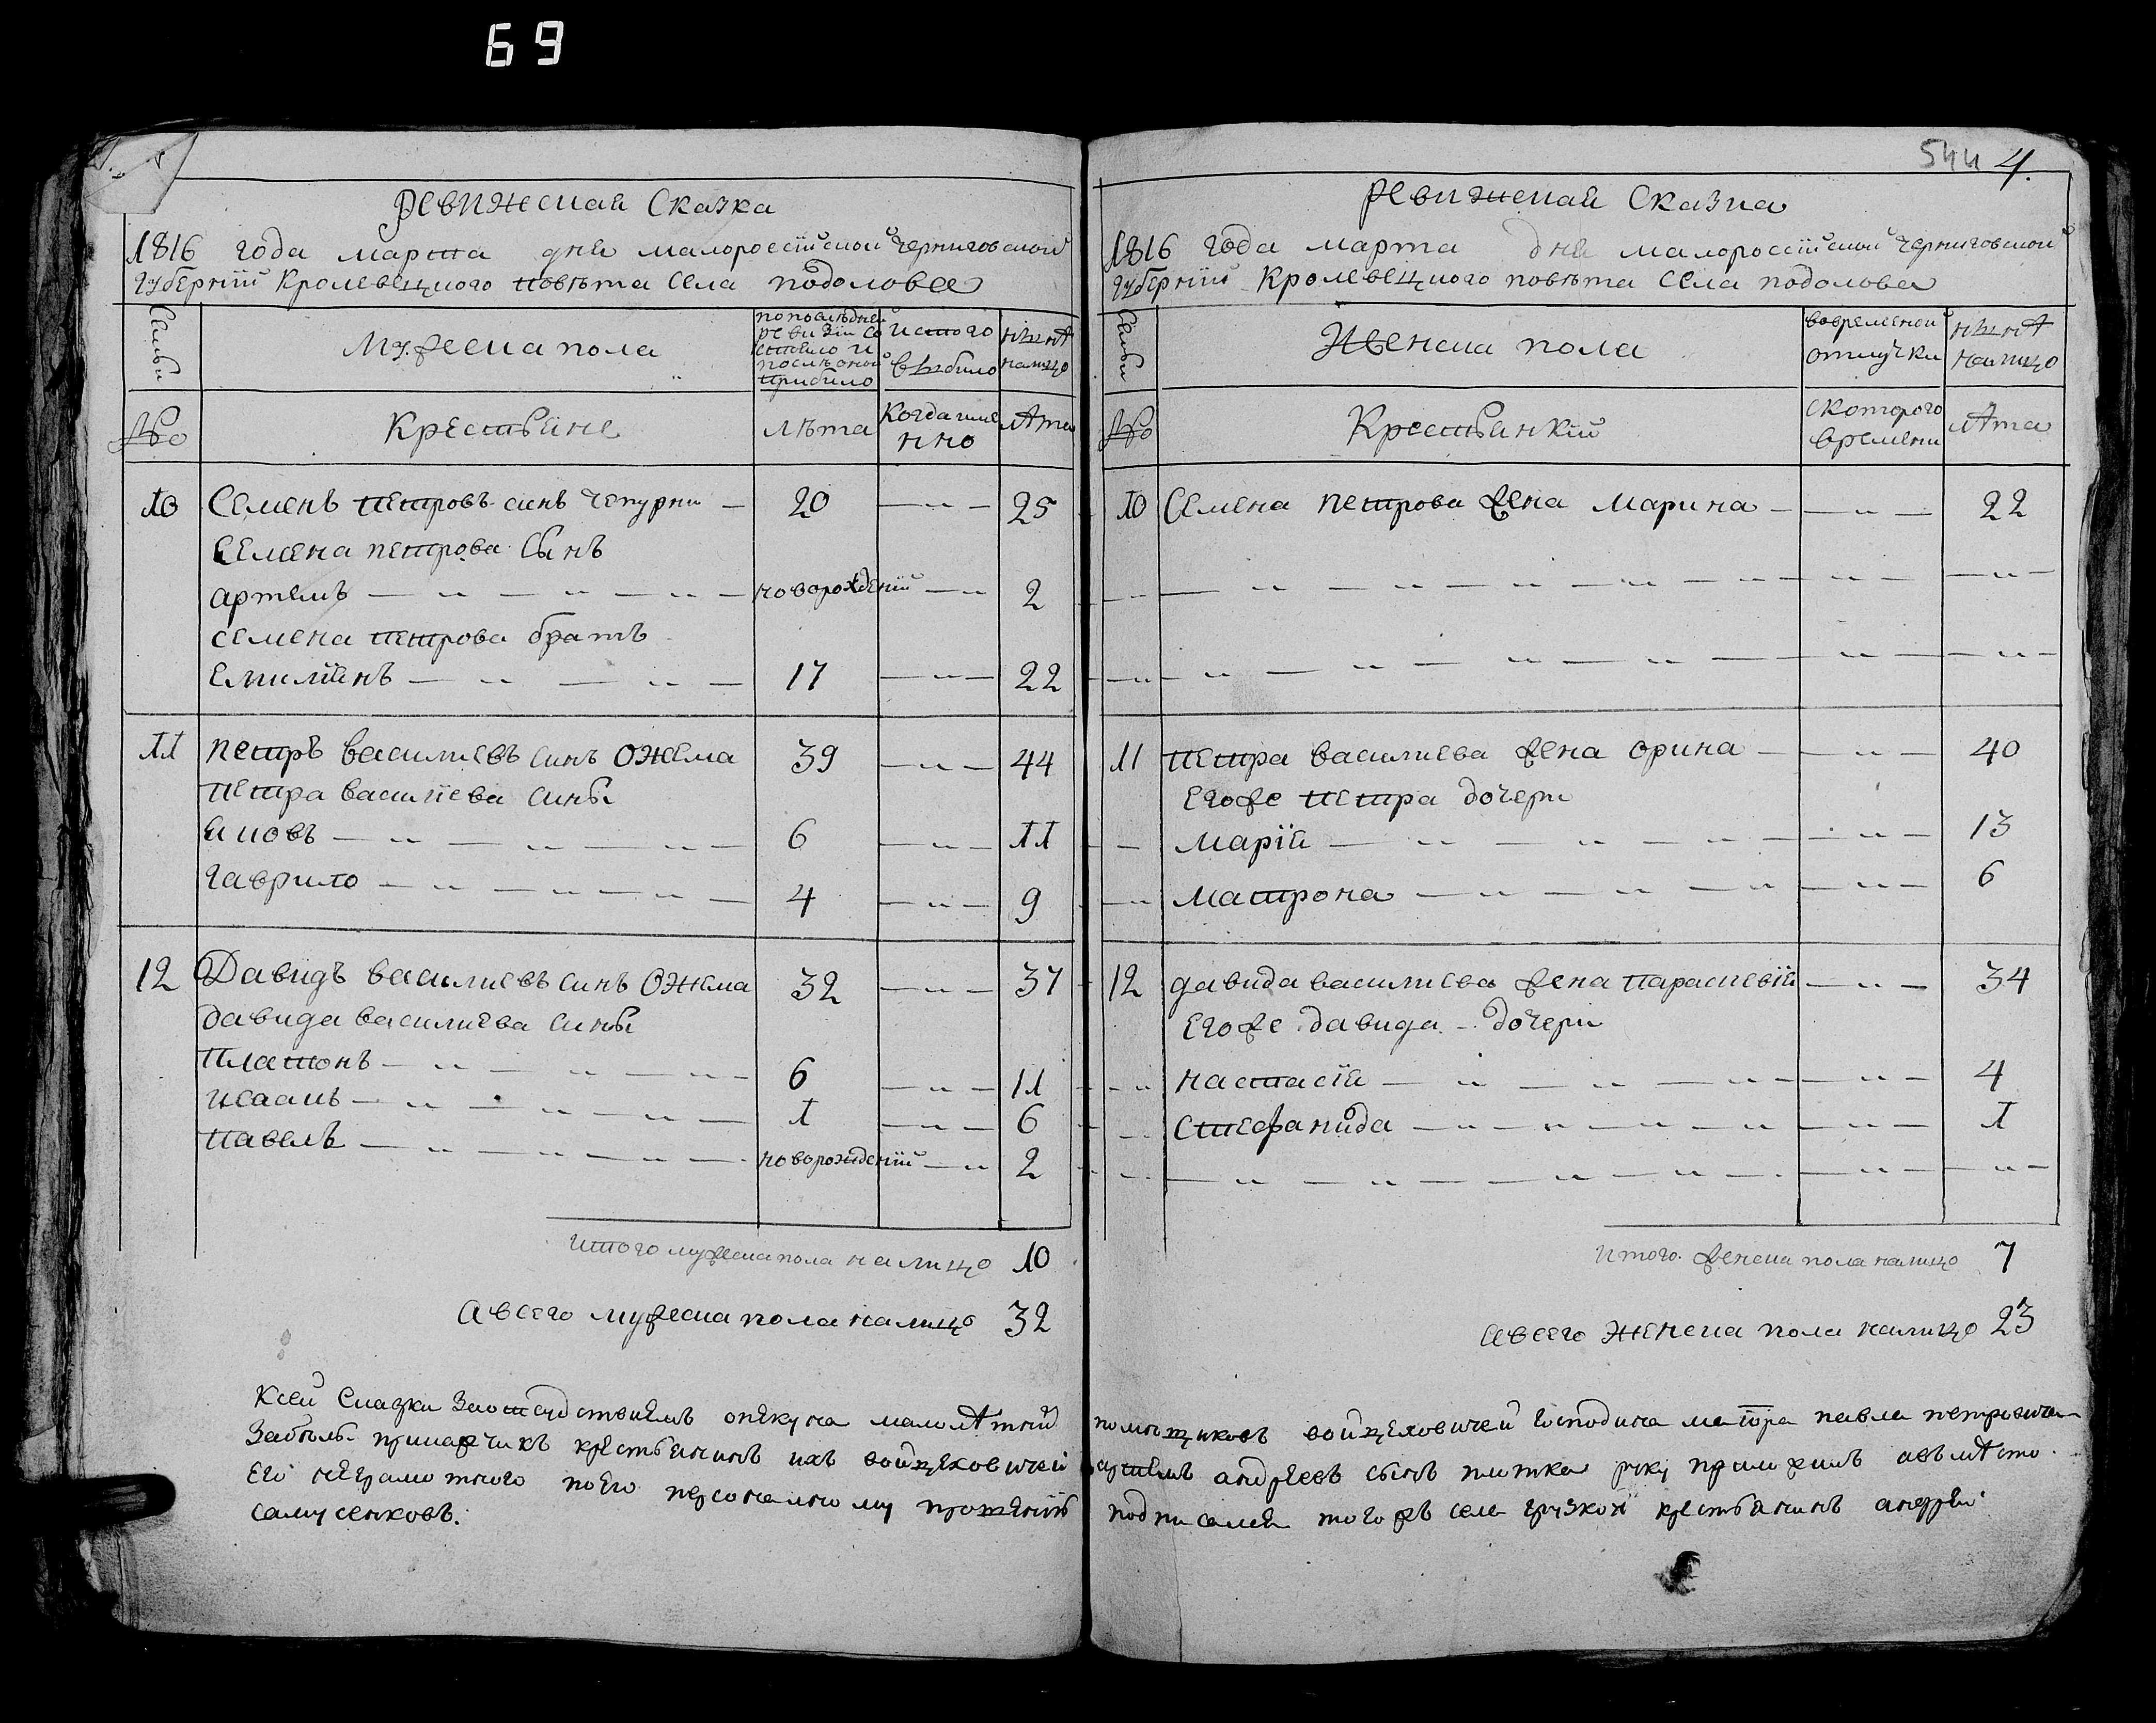 69
Ревижская Сказка
1816 года марта дня малороссійской Черниговской
Губерніи Кролевецкого повѣта Села подолова
Семьи
Мужеска пола
по последней ревизіи состояло и после оной прибило
ис того выбило
нынѣ налицо
№
Крестьяне
лѣта
Когда именно
лѣта
10 Семенъ петровъ синъ чепурни — 20 — „ — 25
Семена петрова Сынъ
артемъ — „ — „ — „ — новорожденій — „ 2
семена петрова братъ
Емиліенъ — „ — „ — 17 — „ — 22
11 петръ василиевъ синъ Ожема 39 — „ — 44
петра василіева сины
Яковъ — „ — „ — „ — 6 — „ — 11
гаврило — „ — „ — „ — 4 — „ — 9
12 Давидъ василиевъ синъ Ожема 32 — „ — 37
давида василиева сины
платонъ — „ — „ — „ — 6 — „ — 11
исаакъ — „ — „ — „ — 1 — „ — 6
павелъ — „ — „ — „ — новорожденій — „ 2
Итого мужеска пола налицо 10
А всего мужеска пола налицо 32
544 4.
Ревижская Сказка
1816 года марта дня малороссійской Черниговской
Губерніи Кролевецкого повѣта Села подолова
Семьи
Женска пола
во временой отлучки
нынѣ налицо
№
Крестьянкій
с которого времени
лѣта
10 Семена петрова жена марина — — „ — 22
11 петра василиева жена орина — — „ — 40
Его же петра дочери
марія — „ — „ — „ — 13
матрона — „ — „ — „ — 6
12 давида василиева жена параскевія — „ — 34
Его же давида — дочери
настасія — „ — „ — „ — 4
стефанида — „ — „ — „ — 1
Итого женска пола налицо 7
Авсего женска пола налицо 23
К сей Сказки опекуна малолѣтний помѣщиковъ войцеховичей Господина маіора павла петровича
прикажчикъ крестьянинъ ихъ войцеховичей артемъ андреевъ сынъ руку приложилъ авъместо
Его неграмотного по его персоналному прошенію подписался того жъ села крестьянинъ андрей
самусенковъ.